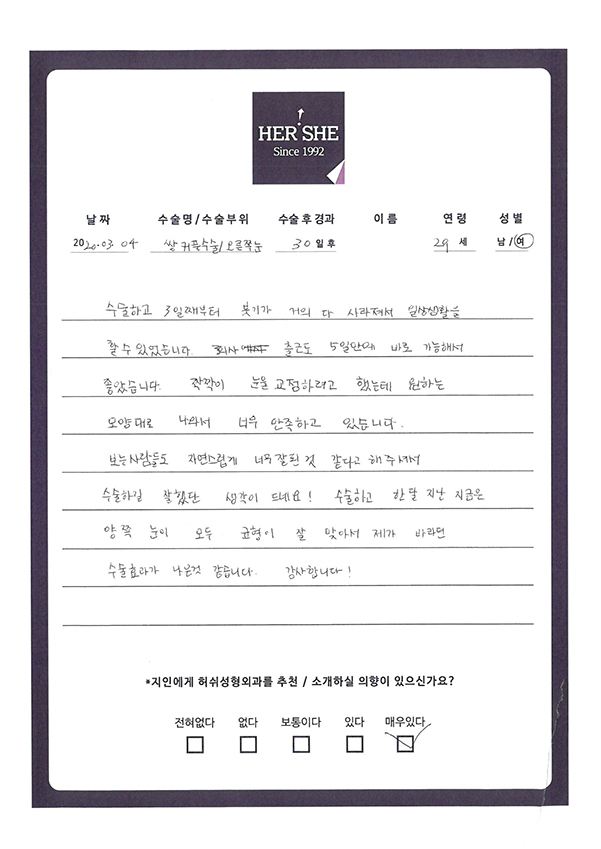 HER SHE
Since 1992
날 짜 수술명/수술부위 수술 후 경과 이 름 연 령 성 별
2020.03.04 쌍커풀수술/오른쪽눈 30일 후 29 세 남/여
수술하고 3일째부터 붓기가 거의 다 사라져서 일상생활을
할 수 있었습니다. 회사 출근도 5일만에 바로 가능해서
좋았습니다. 짝짝이 눈을 교정하려고 했는데 원하는
모양대로 나와서 너무 만족하고 있습니다.
보는사람들도 자연스럽게 너무 잘된 것 같다고 해주셔서
수술하길 잘했단 생각이 드네요! 수술하고 한달 지난 지금은
양쪽 눈이 모두 균형이 잘 맞아서 제가 바라던
수술효과가 나온것 같습니다. 감사합니다!
*지인에게 허쉬성형외과를 추천 / 소개하실 의향이 있으신가요?
전혀없다 없다 보통이다 있다 매우있다